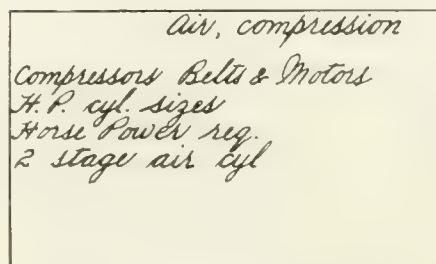 Air, compression
Compressors Belts & Motors
H.P. cyl. sizes
Horse Power req.
2 stage air cyl